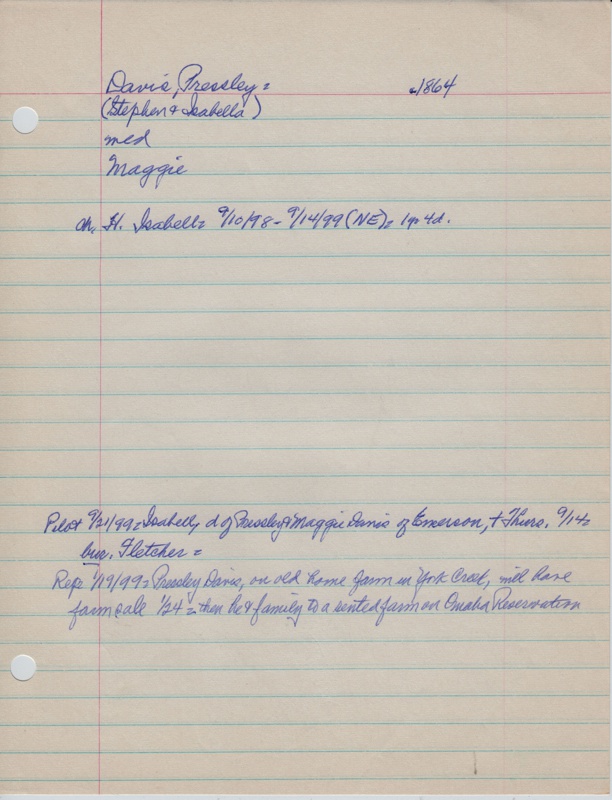 Davis, Pressley = c1864
(Stephen & Isabella)
med
Maggie
ch. H. Isabell = 9/10/98 - 9/14/99 (NE) = 1y 4d.
Pilot 9/21/99 = Isabell, d of Pressley & Maggie Davis of Emerson, † Thurs. 9/14 =
bur. Fletcher =
Rep: 1/19/99 = Pressley Davis, on old home farm in York Creek, will have
farm sale 1/24 = then he & family to a rented farm on Omaha Reservation